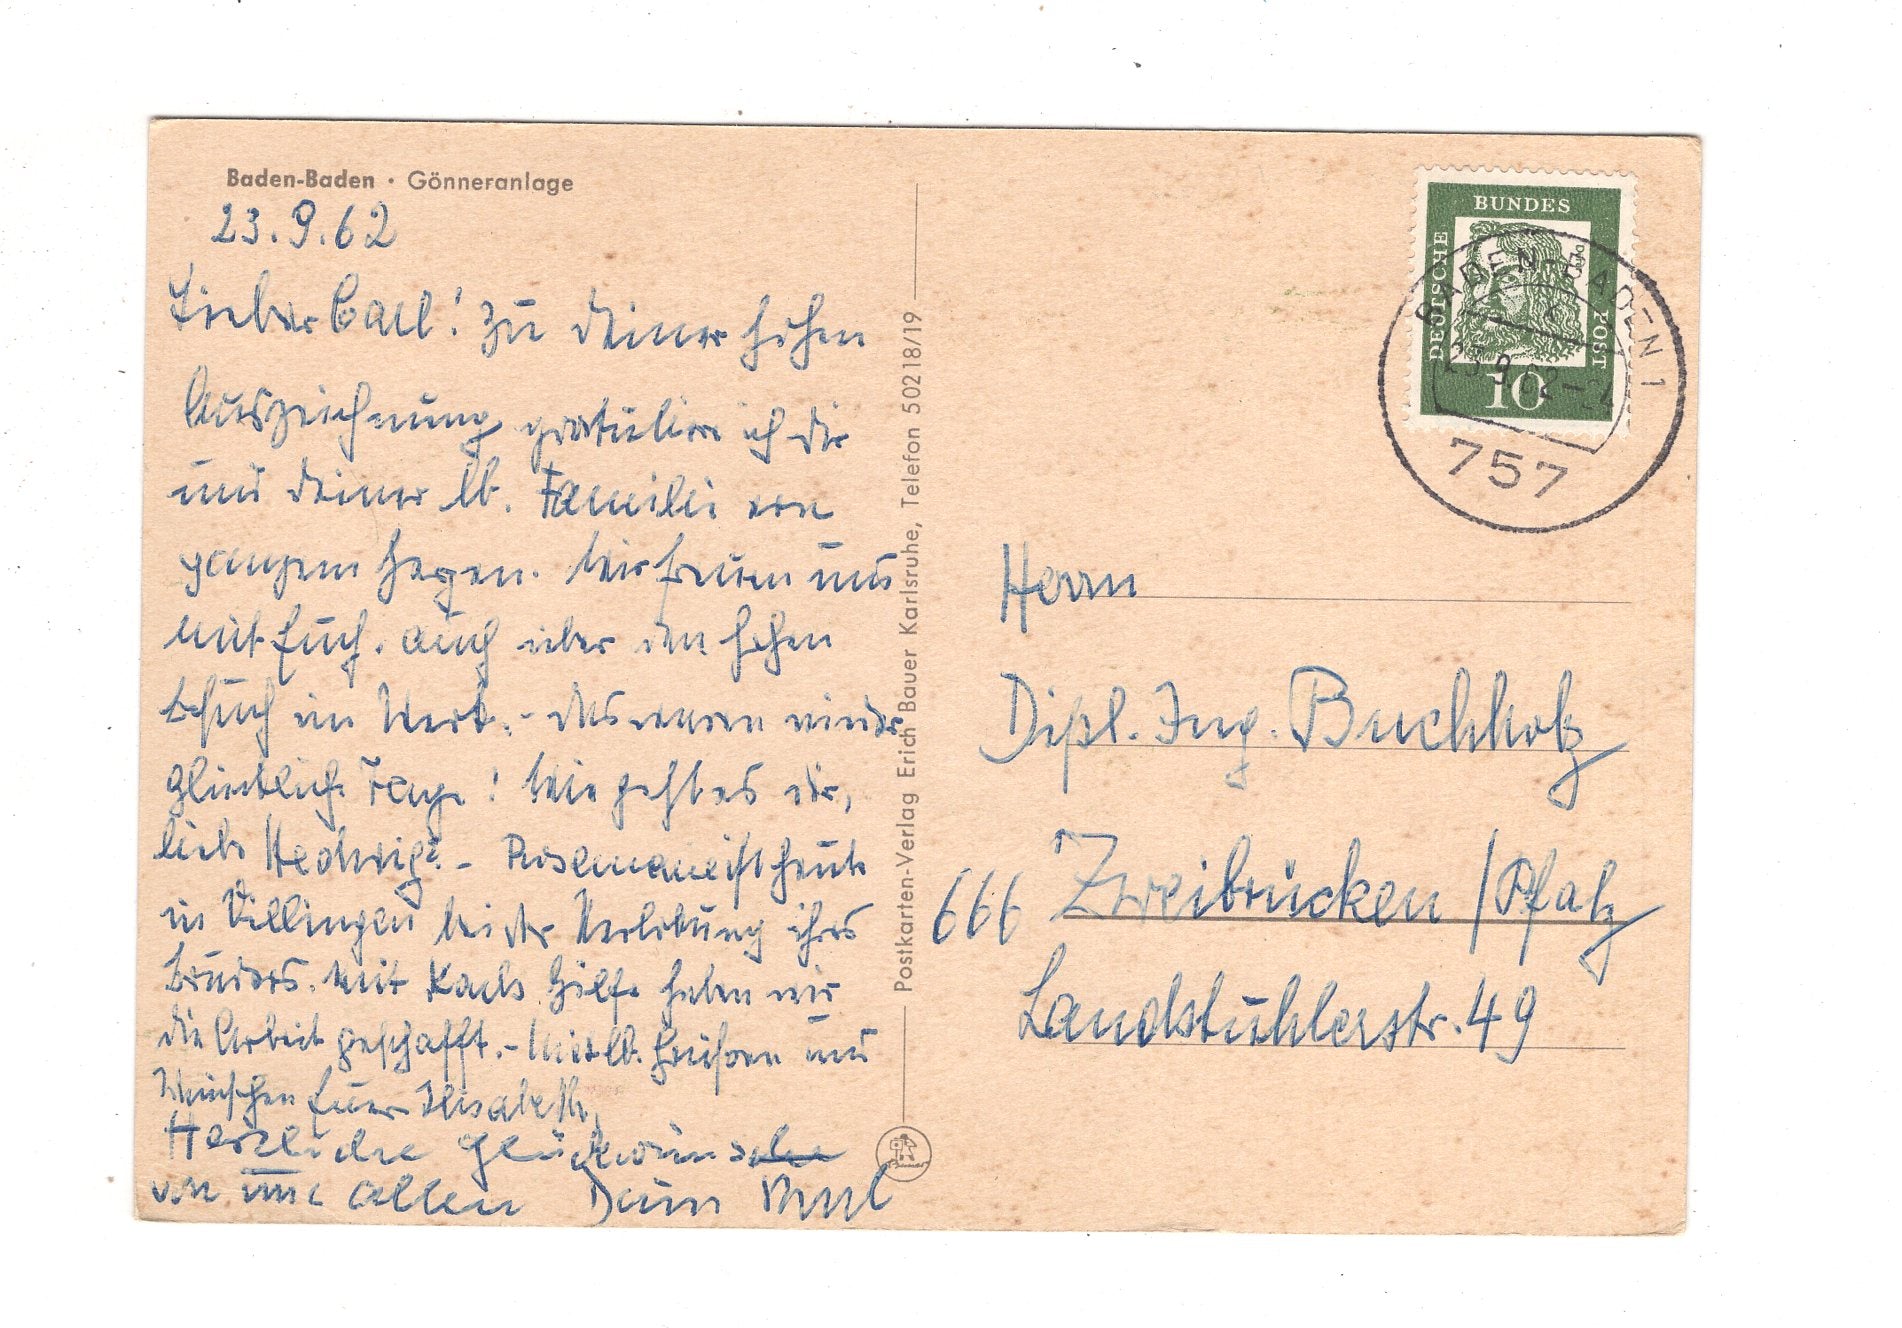 Baden-Baden · Gönneranlage
23.9.62
Lieber Carl! Zu Deiner hohen
Auszeichnung gratuliere ich Dir
und Deiner lb. Familie von
ganzem Herzen. Wir freuen uns
mit Euch. Auch über den hohen
Besuch im Werk.- Das waren wieder
glückliche Tage! Wie geht es Dir,
liebe Hedwig? - Rosemarie ist heute
in Villingen bei der Verlobung ihres
Bruders. Mit Karls Hilfe haben wir
die Arbeit geschafft.- Mit lb. Grüssen und
Wünschen Euer Elisabeth.
Herzliche Glückwünsche
von uns allen Dein
Postkarten-Verlag Erich Bauer Karlsruhe, Telefon 50218/19
BUNDES
DEUTSCHE
POST
10
BADEN-BADEN 1
23.9.62-24
757
Herrn
Dipl. Ing. Buchholz
666 Zweibrücken /Pfalz
Landstuhlerstr. 49